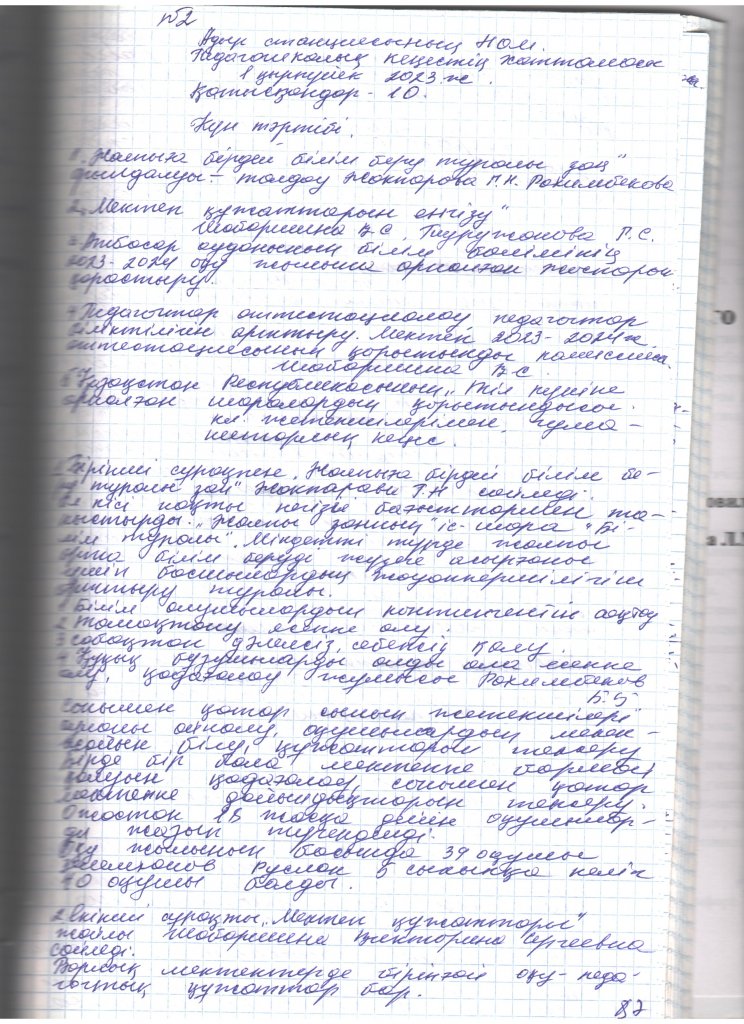 №2
Адыр станциясының НОМ.
Педагогикалық кеңестің хаттамасы
1 ширтуйек 2023 ж.
Қатысқандар - 10.
Күн тәртібі.
1. „Жалпыға бірдей білім беру туралы заң"
орындалуы – талдау Жакпарова Г.Н. Рахимбекова
2. „Мектеп құжаттарын енгізу"
Шабаршина В.С. Нуружанова Г.С.
3. Атбасар ауданының білім бөлімінің
2023-2024 оқу жылына арналған жоспарын
қарастыру.
4. Педагогтар аттестациялау педагогтар
біліктілігін арттыру. Мектеп 2023-2024 ж.
аттестациясының қорытынды комиссия.
Шабаршина В.С.
5 Қазақстан Республикасының „Тіл күніне
арналған шаралардың қорытындысы.
кл жетекшілерімен, гума-
нитарлық кеңес.
1 Бірінші сұрақпен „Жалпыға бірдей білім бе-
ру туралы заң" Жакпарова Г.Н сөйледі.
Бұл кісі нақты негізгі бағыттармен та-
ныстырды. „Жалпы заңның" іс-шара "Бі-
лім туралы". Міндетті түрде жалпы
орта білім беруді жүзеге асырғаны
үшін басшылардың жауапкершілігін
арттыру туралы.
1 Білім алушылардың контингентін сақтау
2 тамақтану есепке алу.
3 сабақтан дәлелсіз, себепсіз қалу.
4 Құқық бұзушыларды алды ала есепке
алу, қадағалау жұмысы Рахимбеков
Б.Б
Сонымен қатар сынып жетекшілері
арнайы айналу, оқушылардың мекен-
жайын білу, құжаттарын тексеру
бірде бір бала мектепке бармай
қалуын қадағалау, сонымен қатар
мектепке дайындықтарын тексеру.
0 жастан 18 жасқа дейін оқушылар-
ды жазып тіркелді.
Оқу жылының басында 39 оқушы
Руслан 5 сыныпқа келіп
40 оқушы болды.
2 Екінші сұрақты „Мектеп құжаттары"
жайлы Шабаршина Виктория Сергеевна
сөйледі.
Барлық мектептерде бірыңғай оқу-педа-
гогтық құжаттар бар.